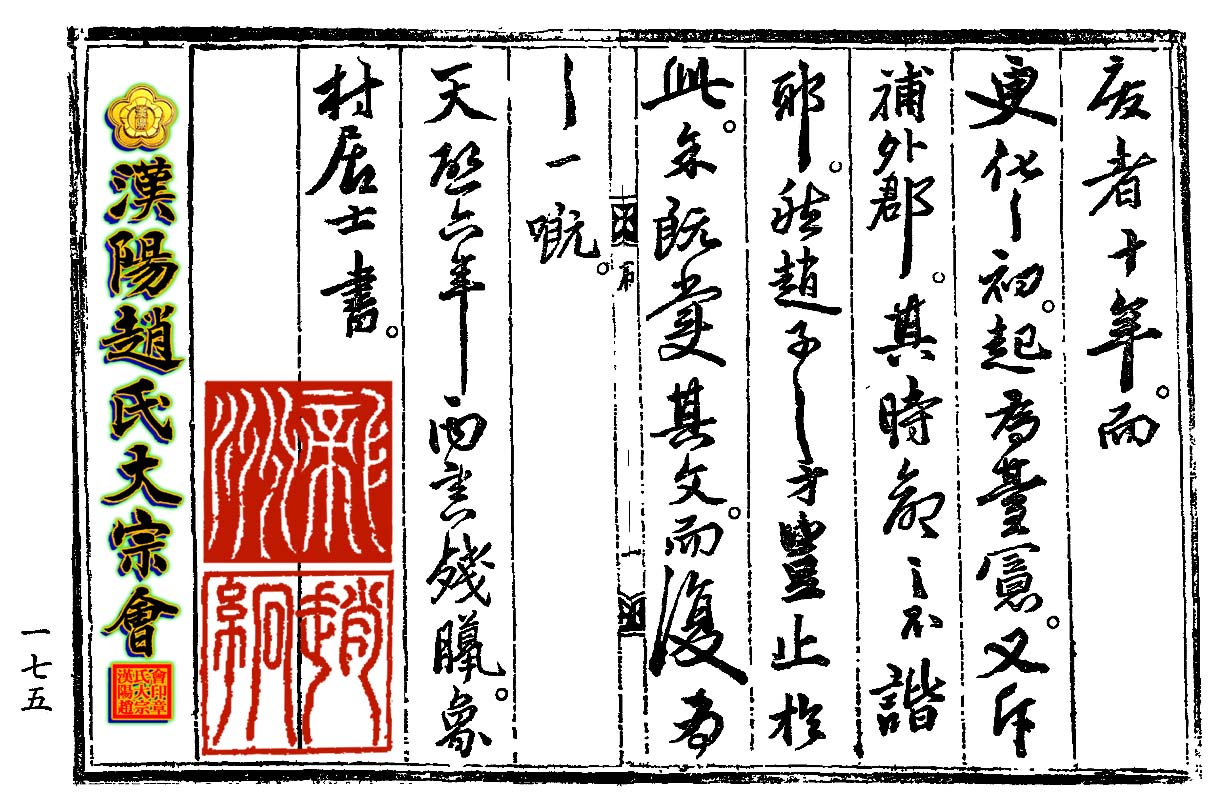 廢者十年。而
更化之初。起為臺憲。又斥
補外郡。其時命之不諧
耶。然趙子之才豈止於
此。余既愛其文。而復為
之一嘅。
天啓六年丙寅殘臘。象
村居士書。
趙絅
漢陽趙氏大宗會
漢陽趙氏大宗會印章
一七五